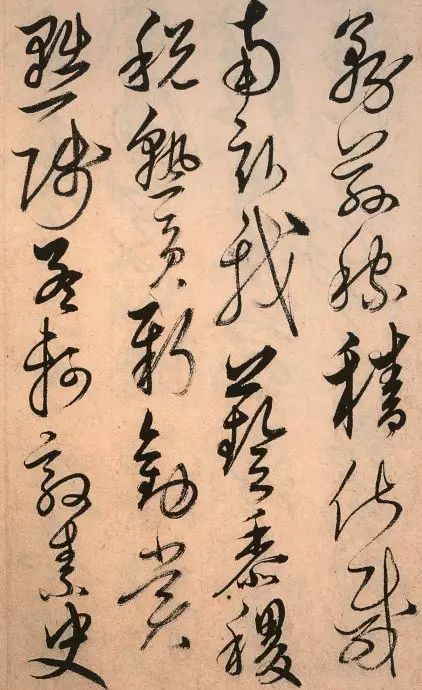 務茲稼穡俶載
南畝我藝黍稷
稅熟貢新勸賞
黜陟孟軻敦素史